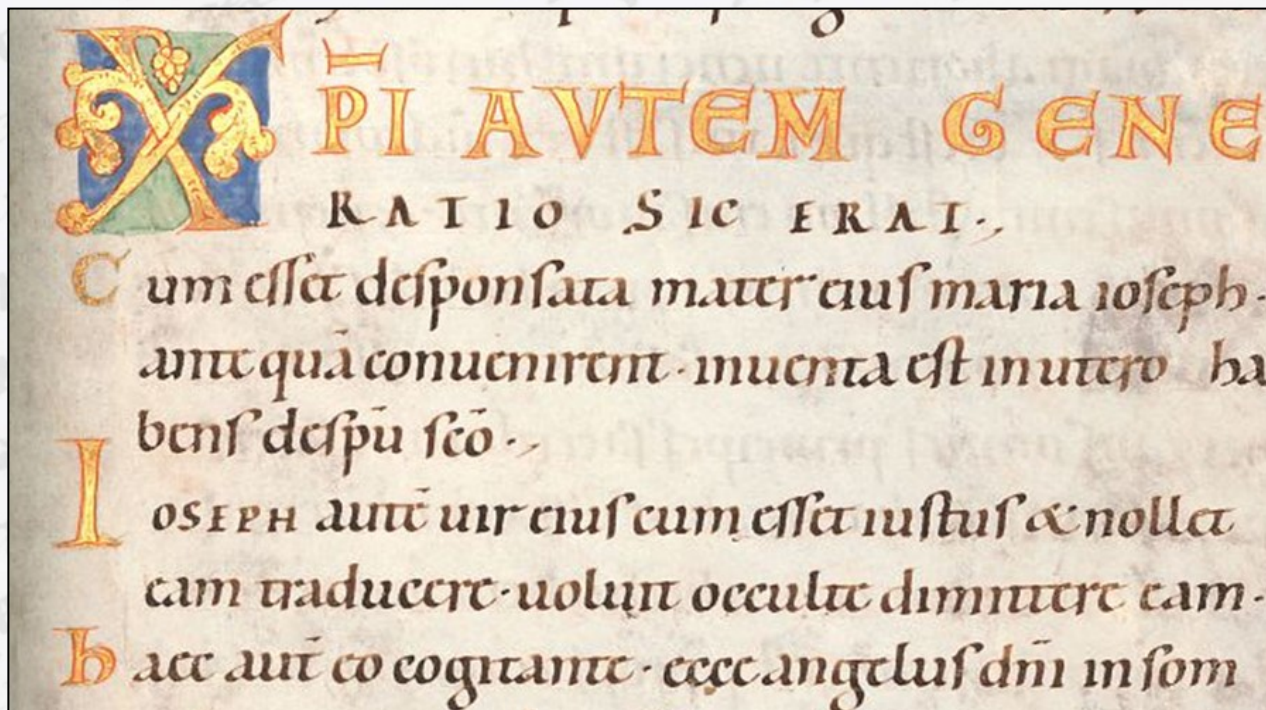 XP̅I AVTEM GENE
RATIO SIC ERAT·,
Cum esset desponsata mater eius maria ioseph·
antequā conuenirent· inuenta est in utero ha
bens de sp̄u sc̄o·,
IOSEPH autē uir eius cum esset iustus & nollet
eam traducere· uoluit occulte dimittere eam·
haec aut̄ eo cogitante· ecce angelus dn̄i in som